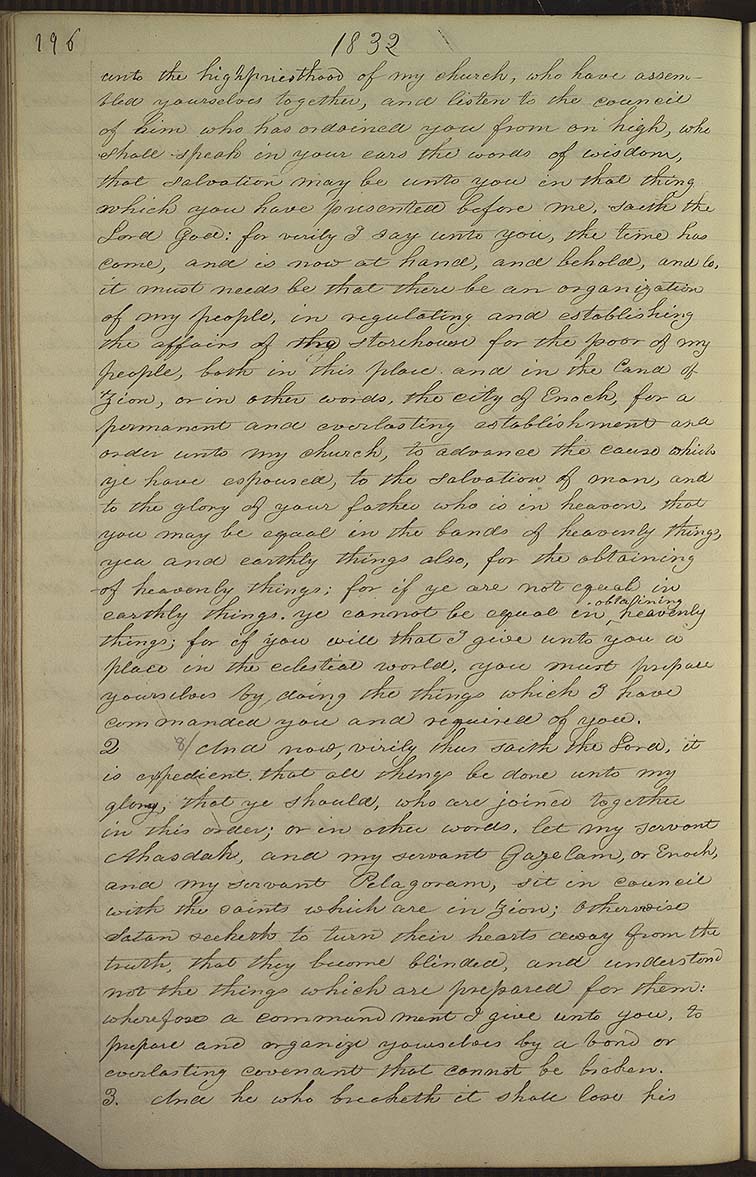 196 1832
unto the highpriesthood of my church, who have assem-
bled yourselves together, and listen to the council
of him who has ordained you from on high, who
shall speak in your ears the words of wisdom,
that salvation may be unto you in that thing
which you have presented before me, saith the
Lord God: for verily I say unto you, the time has
come, and is now at hand, and behold, and lo,
it must needs be that there be an organization
of my people, in regulating and establishing
the affairs of the storehouse for the poor of my
people, both in this place and in the Land of
Zion, or in other words, the city of Enoch, for a
permanent and everlasting establishment and
order unto my church, to advance the cause which
ye have espoused, to the salvation of man, and
to the glory of your father who is in heaven, that
you may be equal in the bands of heavenly things,
yea and earthly things also, for the obtaining
of heavenly things; for if ye are not equal in
earthly things. ye cannot be equal in obtaining heavenly
things; for if you will that I give unto you a
place in the celestial world, you must prepare
yourselves by doing the things which I have
commanded you and required of you.
2 8/ And now, virily thus saith the Lord, it
is expedient that all things be done unto my
glory, that ye should, who are joined together
in this order; or in other words, let my servant
Ahasdah, and my servant Gazelam, or Enoch,
and my servant Pelagoram, sit in council
with the saints which are in Zion; otherwise
Satan seeketh to turn their hearts away from the
truth, that they become blinded, and understand
not the things which are prepared for them:
wherefore a commandment I give unto you, to
prepare and organize yourselves by a bond or
everlasting covenant that cannot be broken.
3. And he who breaketh it shall lose his